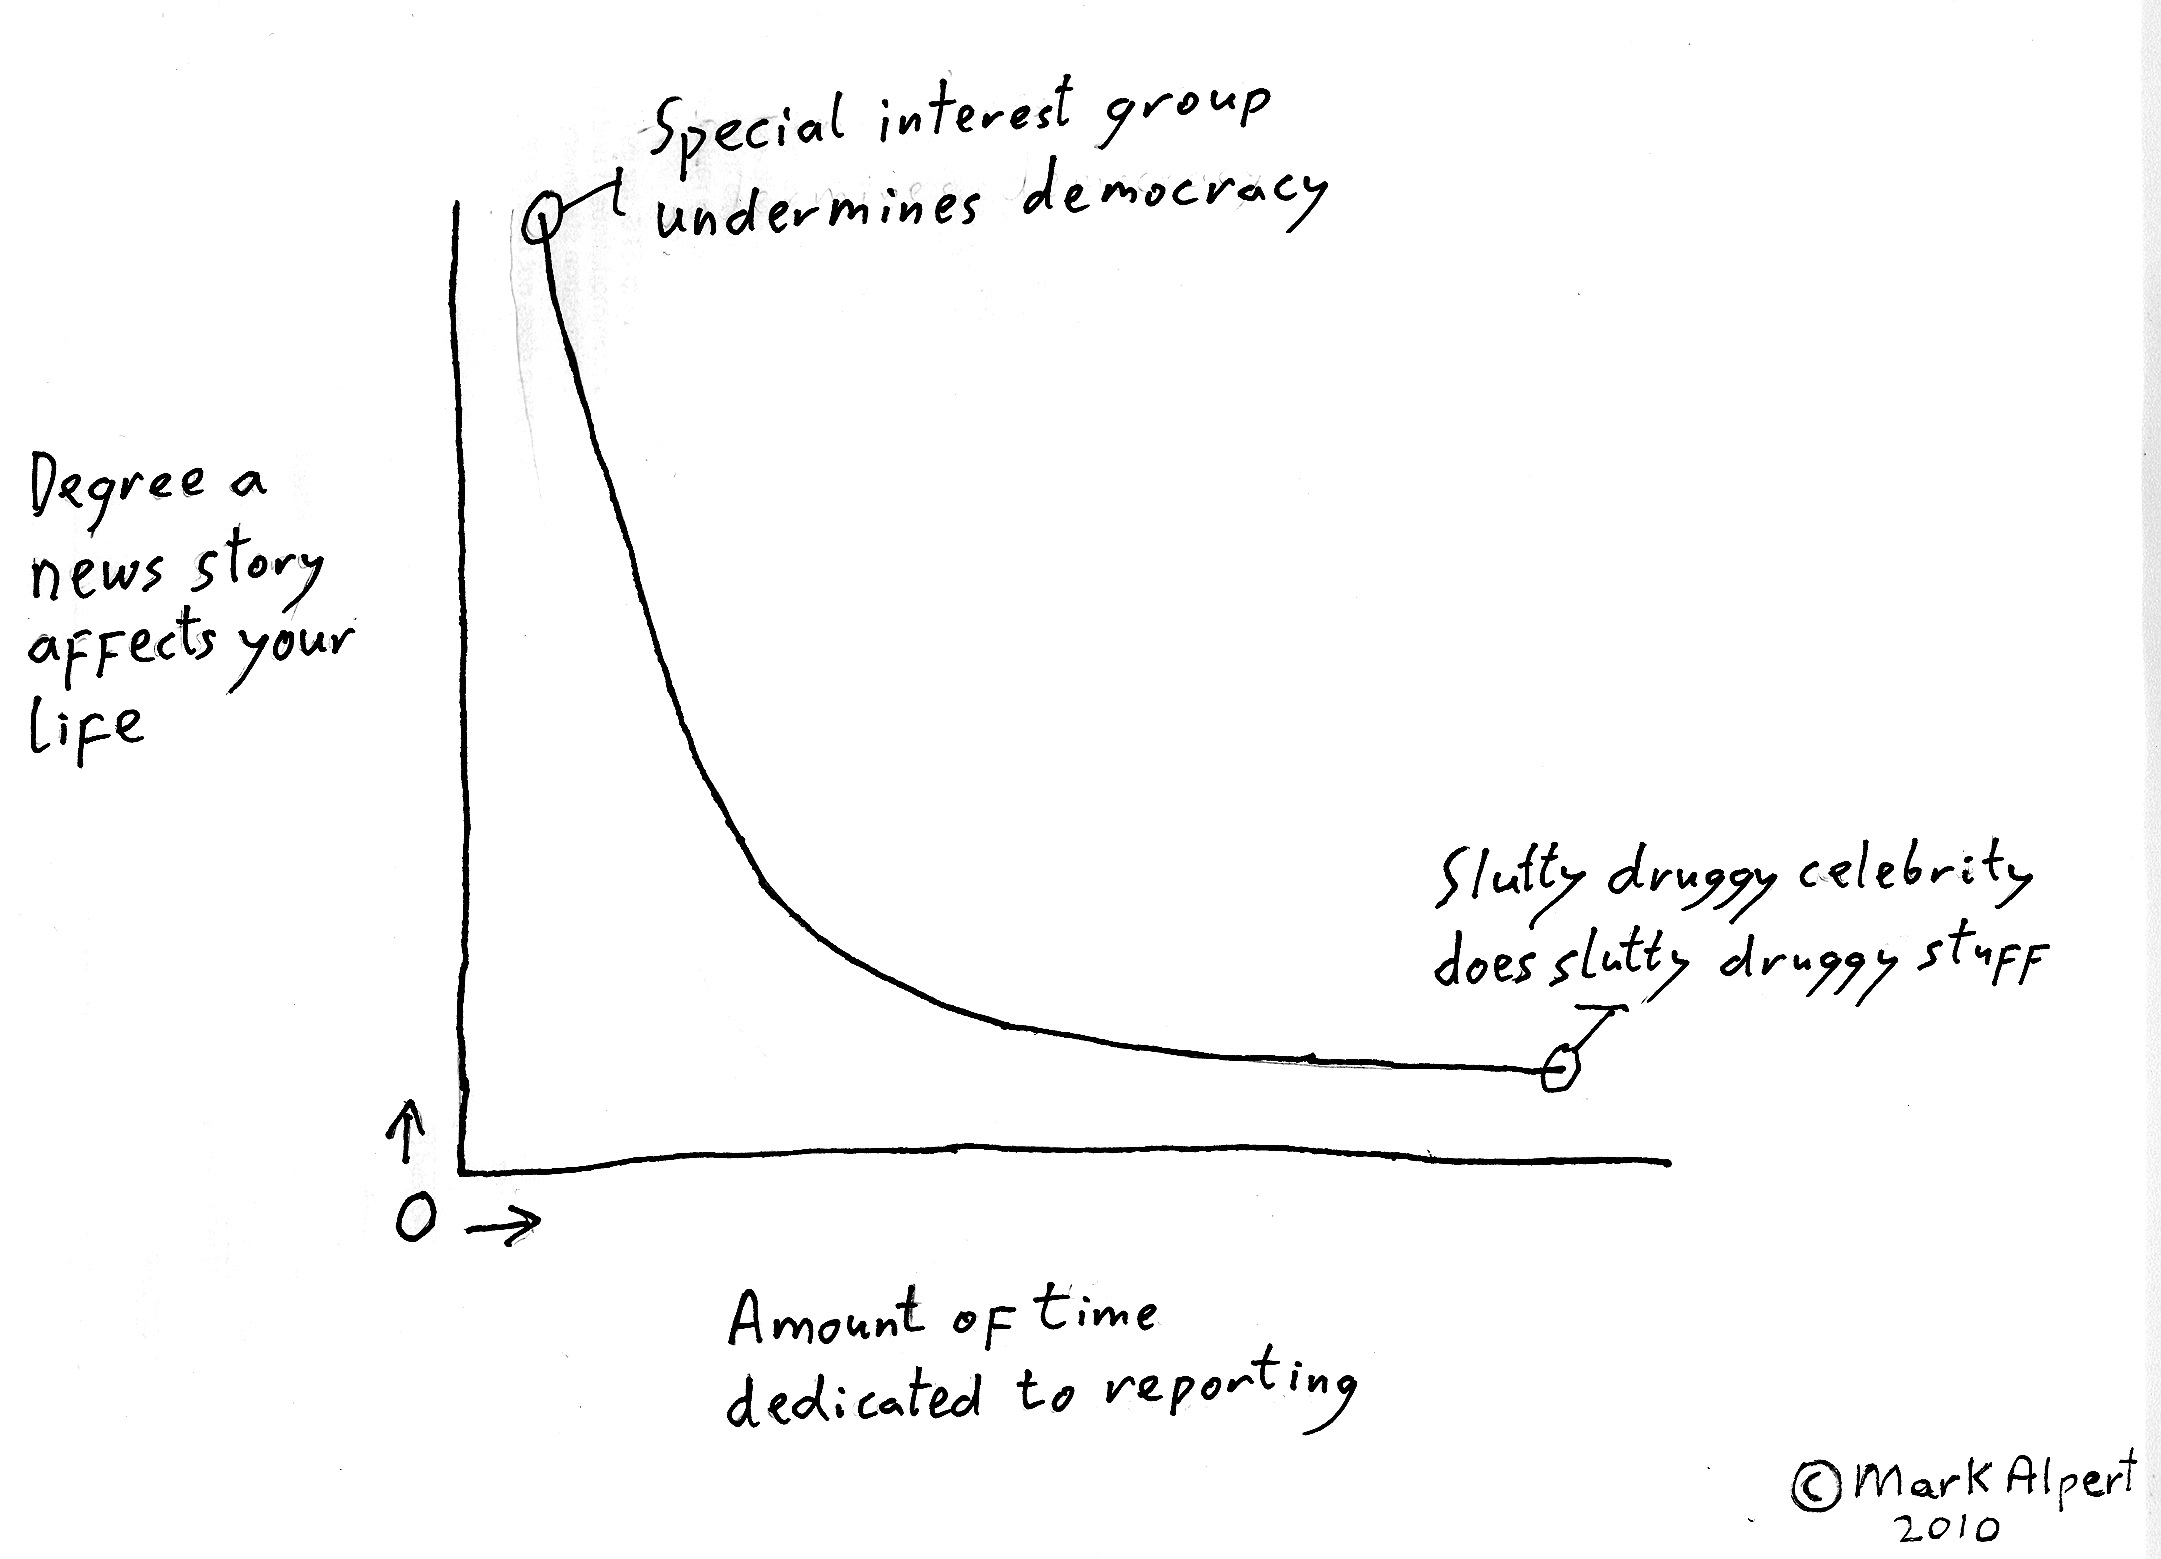 Special interest group
undermines democracy
Degree a
news story
affects your
life
Slutty druggy celebrity
does slutty druggy stuff
0
Amount of time
dedicated to reporting
© Mark Alpert
2010